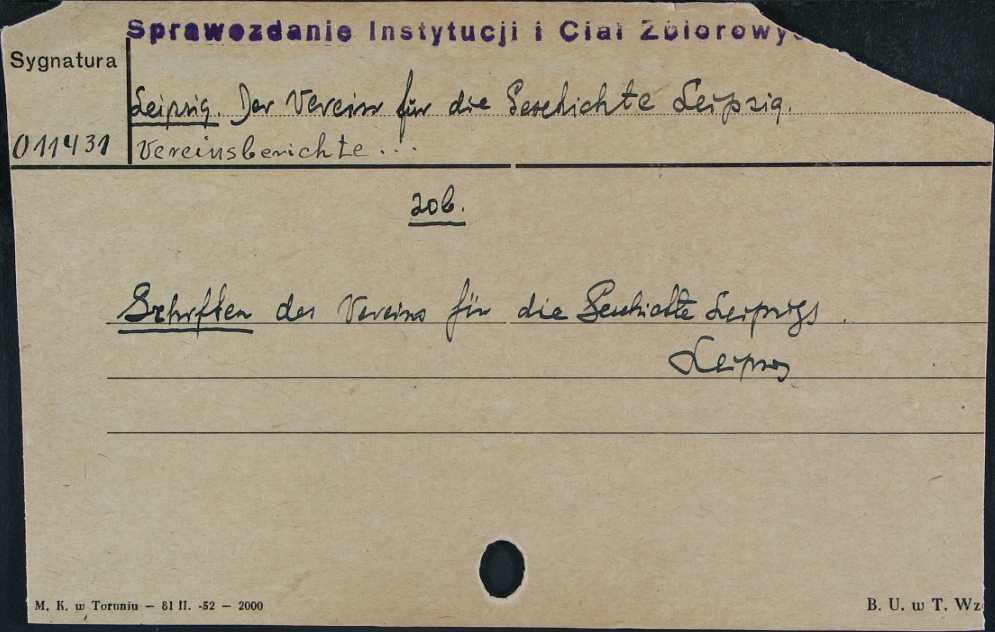 Sprawozdanie Instytucji i Ciał Zbiorowyc
Sygnatura
Leipzig. Der Verein für die Geschichte Leipzig.
011431
Vereinsberichte ...
zob.
Schriften des Vereins für die Geschichte Leipzigs.
Leipzig
M. K. w Toruniu — 81 II. -52 — 2000
B. U. w T. Wz